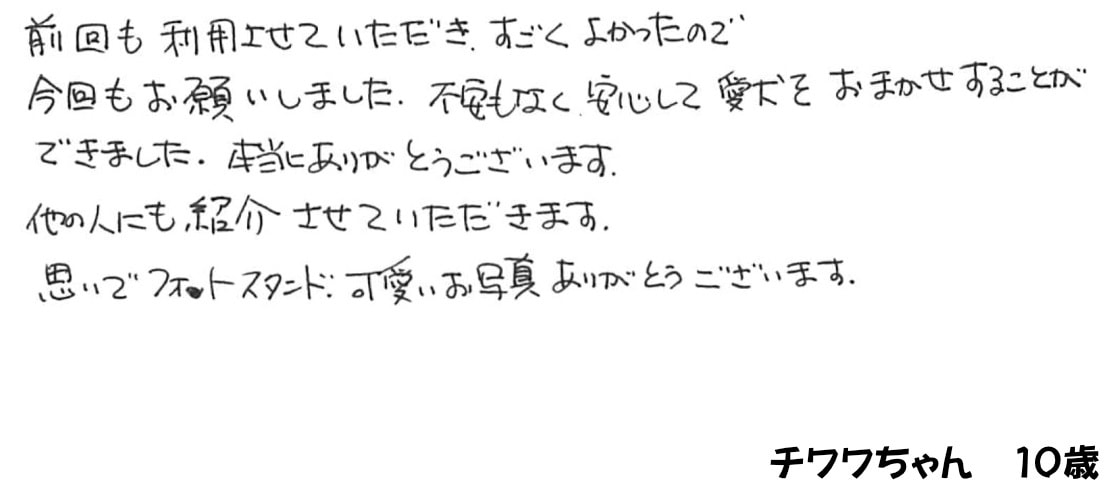 前回も利用させていただき、すごくよかったので
今回もお願いしました。不安もなく安心して愛犬をおまかせすることが
できました。本当にありがとうございます。
他の人にも紹介させていただきます。
思いでフォットスタンド、可愛いお写真ありがとうございます。
チワワちゃん　10歳